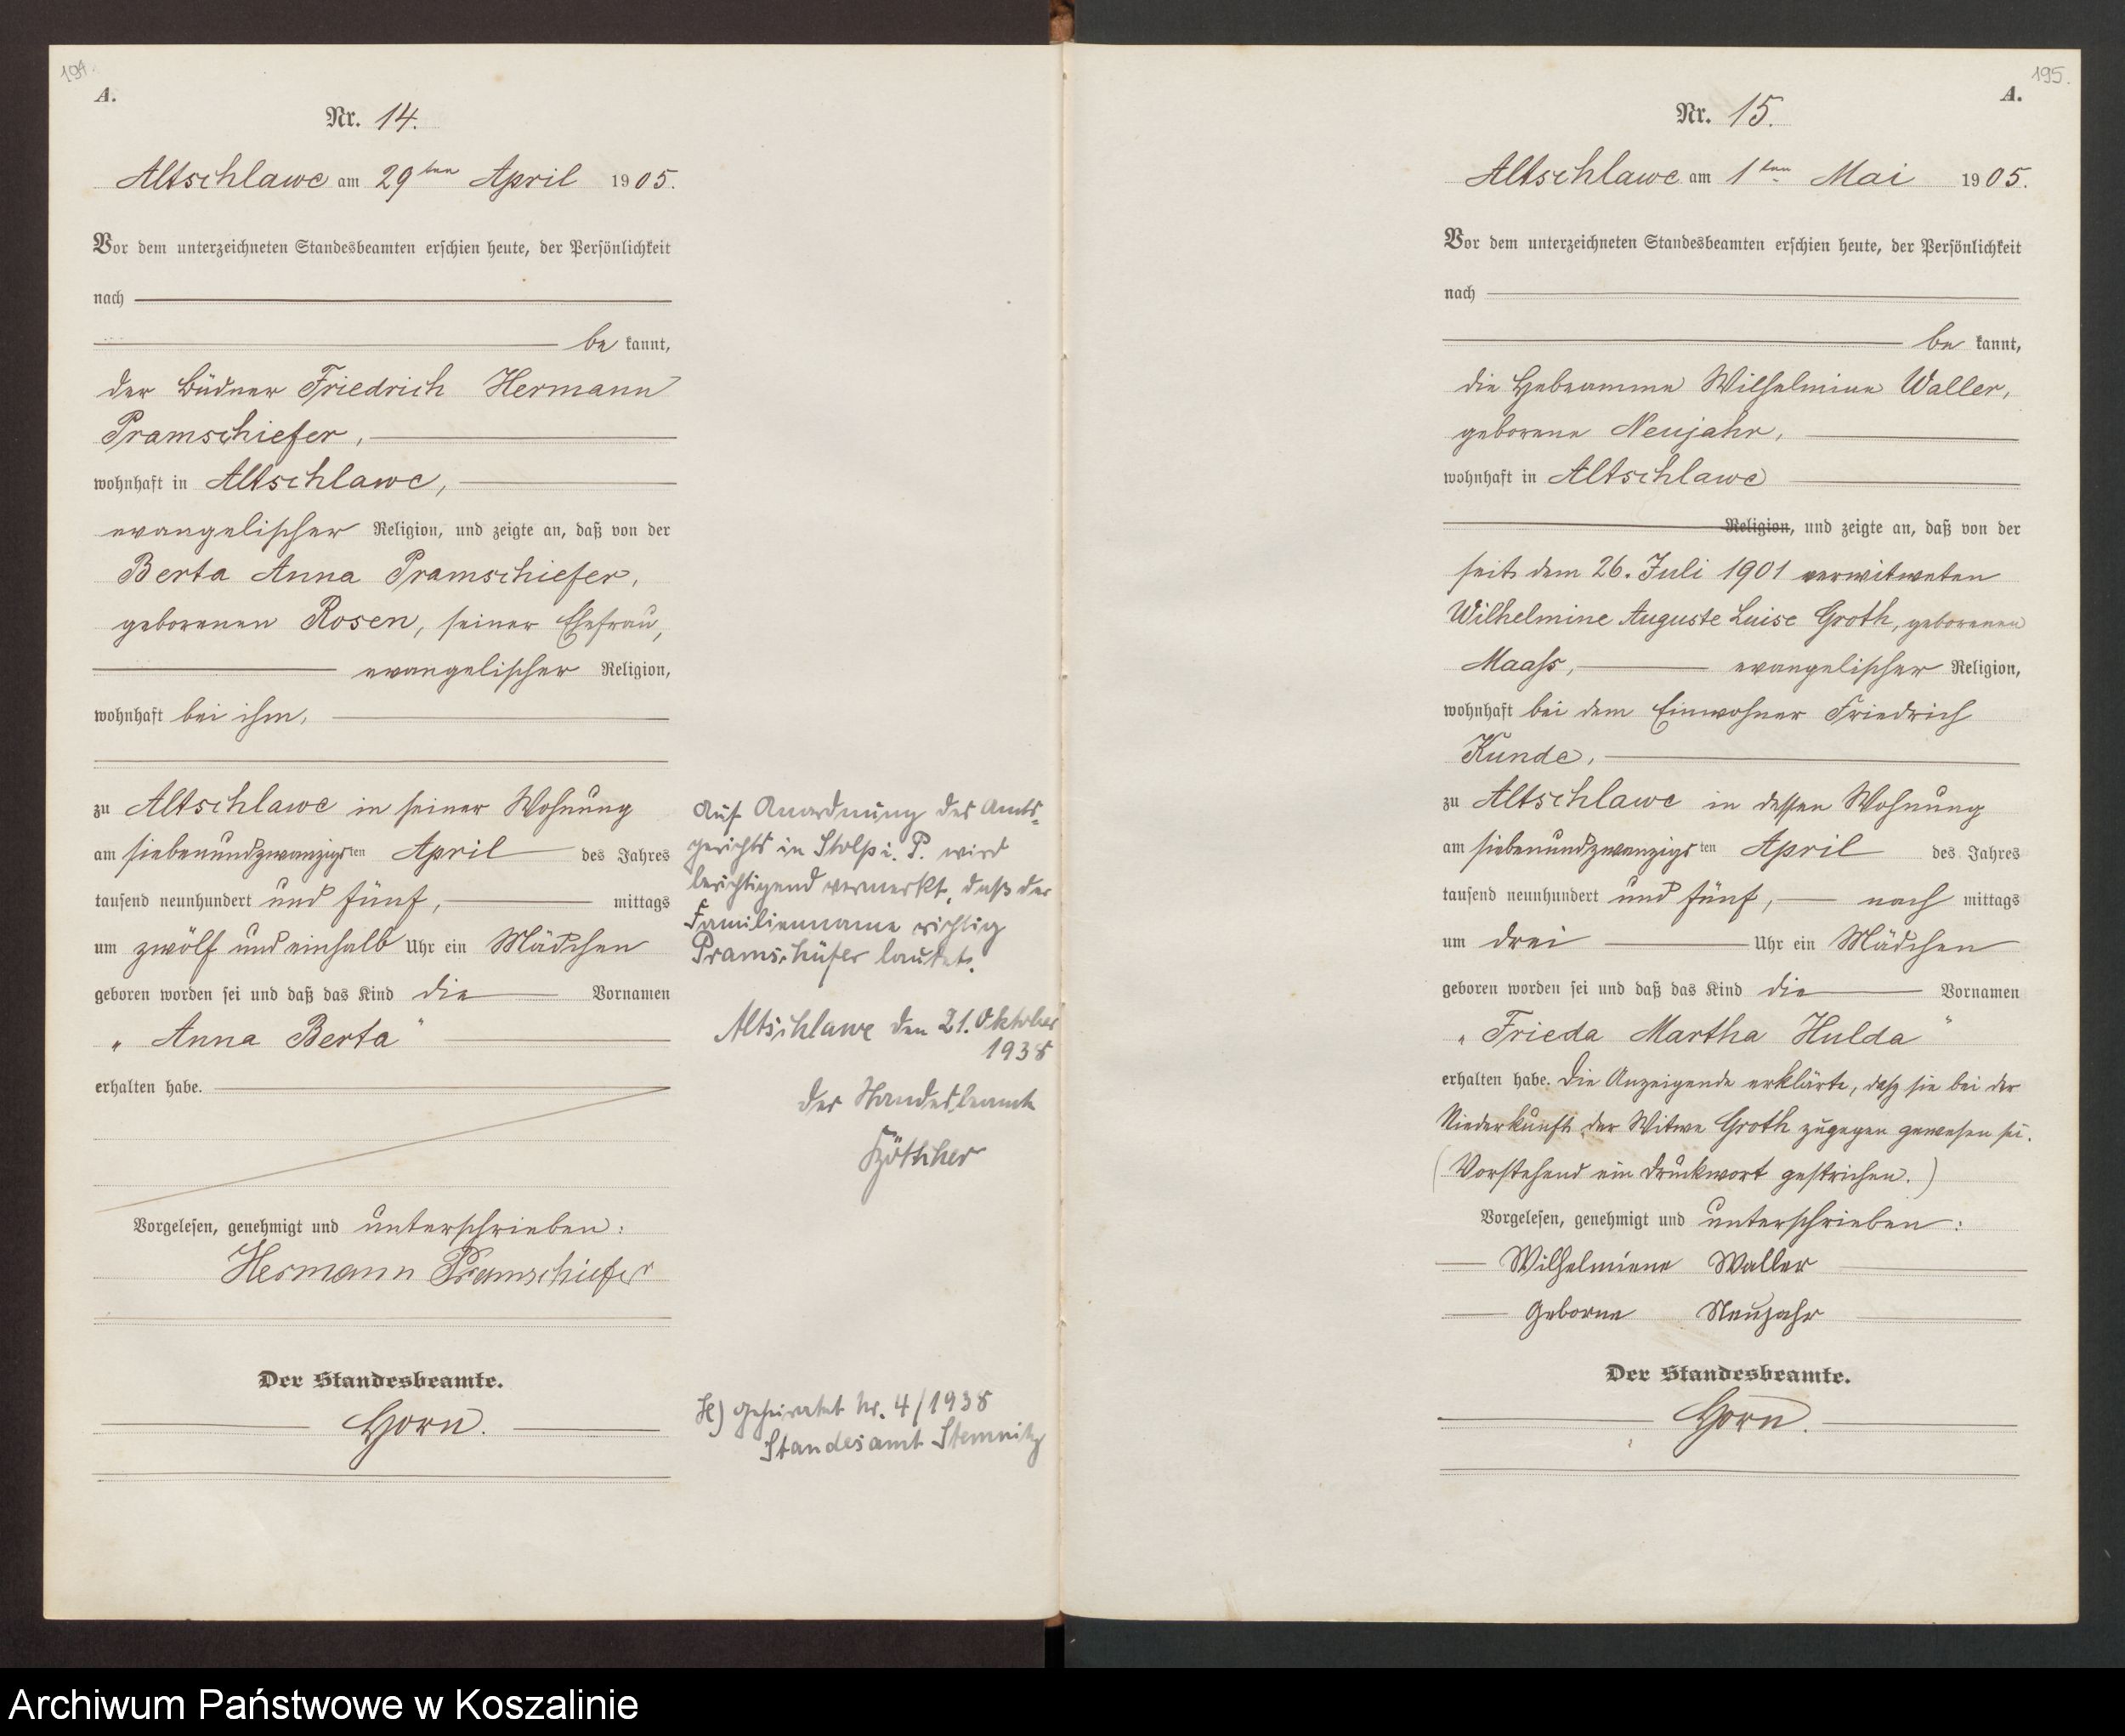 194.
A.
Nr. 14.
Altschlawe am 29ten April 1905.
Vor dem unterzeichneten Standesbeamten erschien heute, der Persönlichkeit
nach
be kannt,
der Büdner Friedrich Hermann
Pramschiefer,
wohnhaft in Altschlawe,
evangelischer Religion, und zeigte an, daß von der
Berta Anna Pramschiefer,
geborenen Rosen, seiner Ehefrau,
evangelischer Religion,
wohnhaft bei ihm,
zu Altschlawe in seiner Wohnung
am siebenundzwanzigsten April des Jahres
tausend neunhundert und fünf, mittags
um zwölf und einhalb Uhr ein Mädchen
geboren worden sei und daß das Kind die Vornamen
„Anna Berta“
erhalten habe.
Vorgelesen, genehmigt und unterschrieben:
Hermann Pramschiefer
Der Standesbeamte.
Horn.
Auf Anordnung des Amts-
gerichts in Stolp i. P. wird
berichtigend vermerkt, daß der
Familienname richtig
Pramschüfer lautet.
Altschlawe den 21. Oktober
1938
Der Standesbeamte
H) geheiratet Nr. 4/1938
Standesamt Stemnitz
195.
A.
Nr. 15.
Altschlawe am 1ten Mai 1905.
Vor dem unterzeichneten Standesbeamten erschien heute, der Persönlichkeit
nach
be kannt,
die Hebeamme Wilhelmine Waller,
geborene Neujahr,
wohnhaft in Altschlawe
Religion, und zeigte an, daß von der
seit dem 26. Juli 1901 verwitweten
Wilhelmine Auguste Luise Groth, geborenen
Maaß, evangelischer Religion,
wohnhaft bei dem Einwohner Friedrich
Kunde,
zu Altschlawe in dessen Wohnung
am siebenundzwanzigsten April des Jahres
tausend neunhundert und fünf, nach mittags
um drei Uhr ein Mädchen
geboren worden sei und daß das Kind die Vornamen
„Frieda Martha Hulda“
erhalten habe. Die Anzeigende erklärte, daß sie bei der
Niederkunft der Witwe Groth zugegen gewesen sei.
(Vorstehend ein Druckwort gestrichen.)
Vorgelesen, genehmigt und unterschrieben:
Wilhelmiene Waller
Geborne Neujahr
Der Standesbeamte.
Horn.
Archiwum Państwowe w Koszalinie